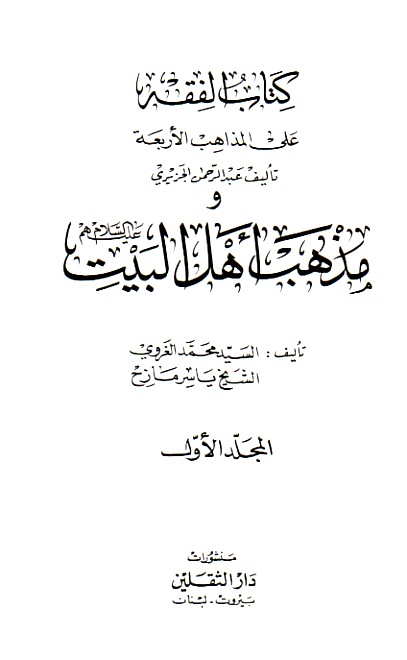 كتاب الفقه
على المذاهب الأربعة
تأليف عبد الرحمن الجزيري
و
مذهب أهل البيت عليهم السلام
تأليف : السيد محمد الغروي
الشيخ ياسر مازح
المجلد الأول
منشورات
دار الثقلين
بيروت - لبنان